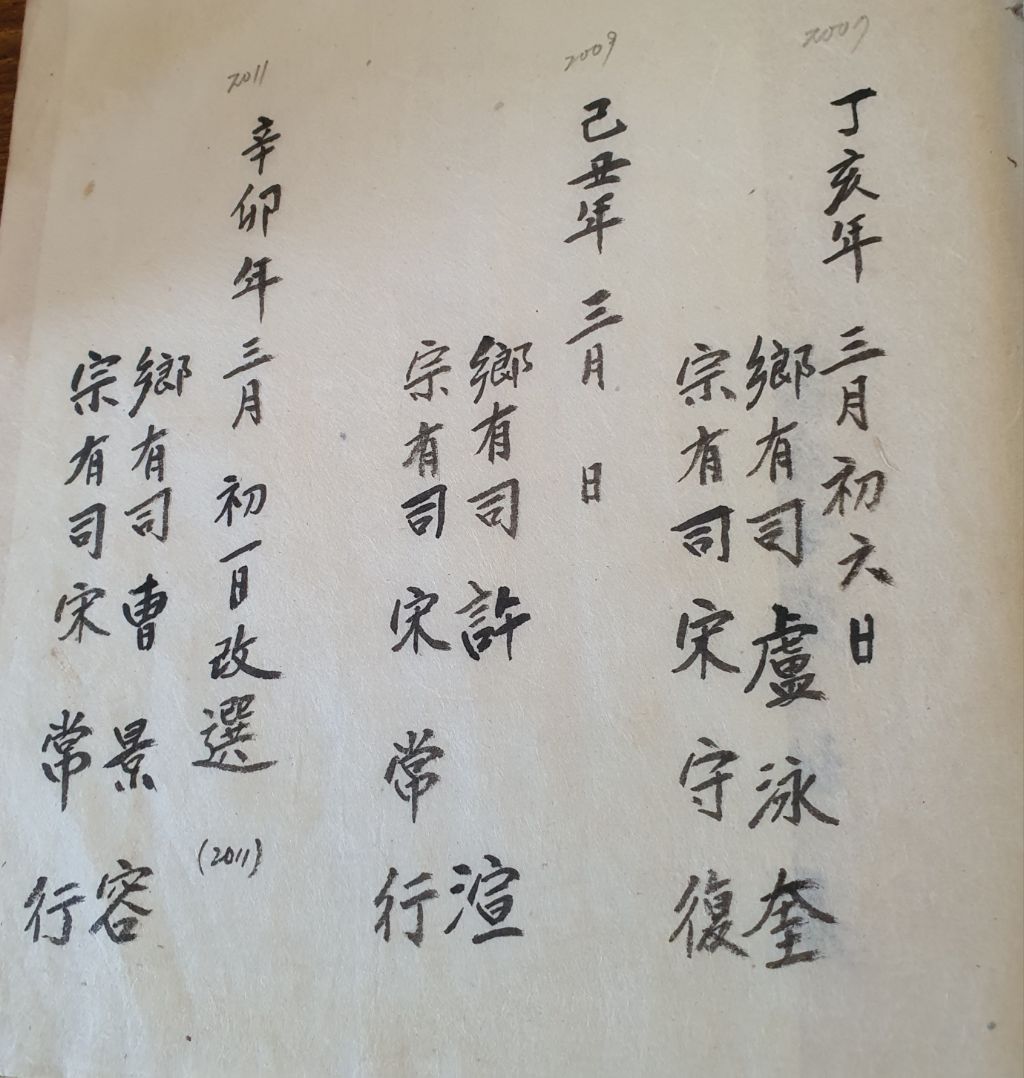 2007
丁亥年 三月初六日
鄕有司 盧泳奎
宗有司 宋守復
2009
己丑年 三月 日
鄕有司 許 渲
宗有司 宋常行
2011
辛卯年 三月 初一日改選 (2011)
鄕有司 曺景容
宗有司 宋常行